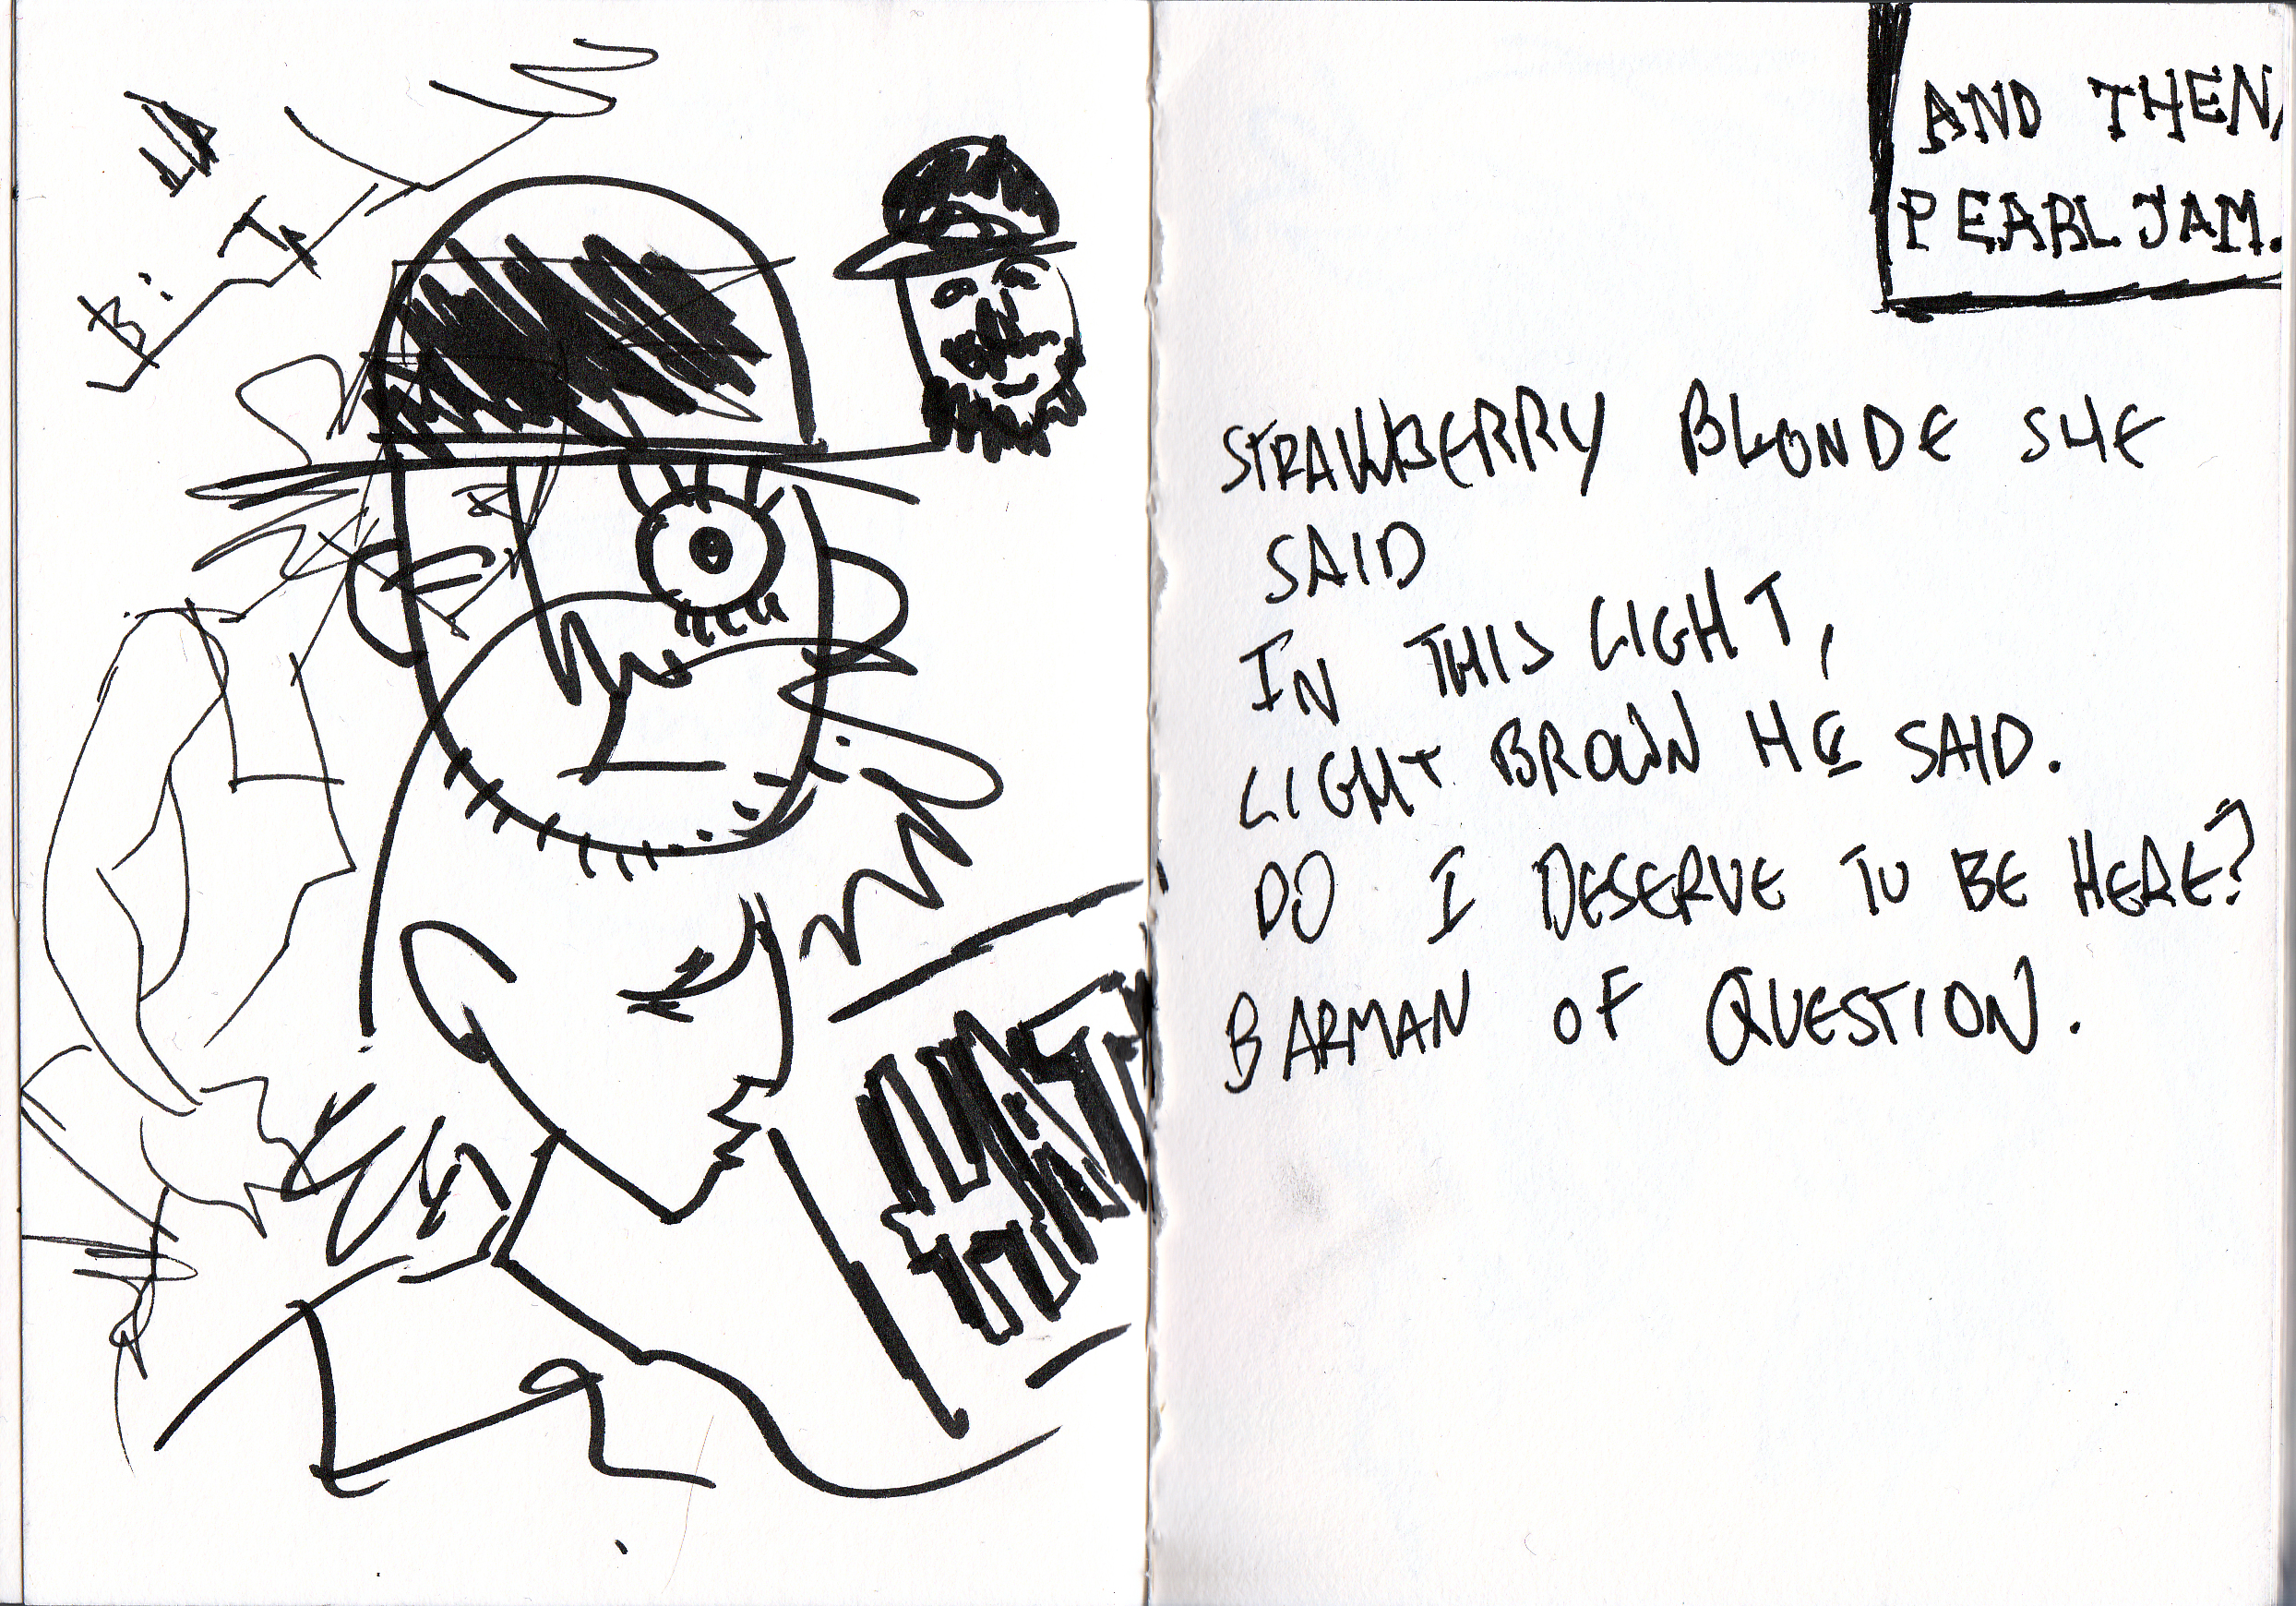 AND THEN,
PEARL JAM.
STRAWBERRY BLONDE SHE
SAID
IN THIS LIGHT,
LIGHT BROWN HE SAID.
DO I DESERVE TO BE HERE?
BARMAN OF QUESTION.